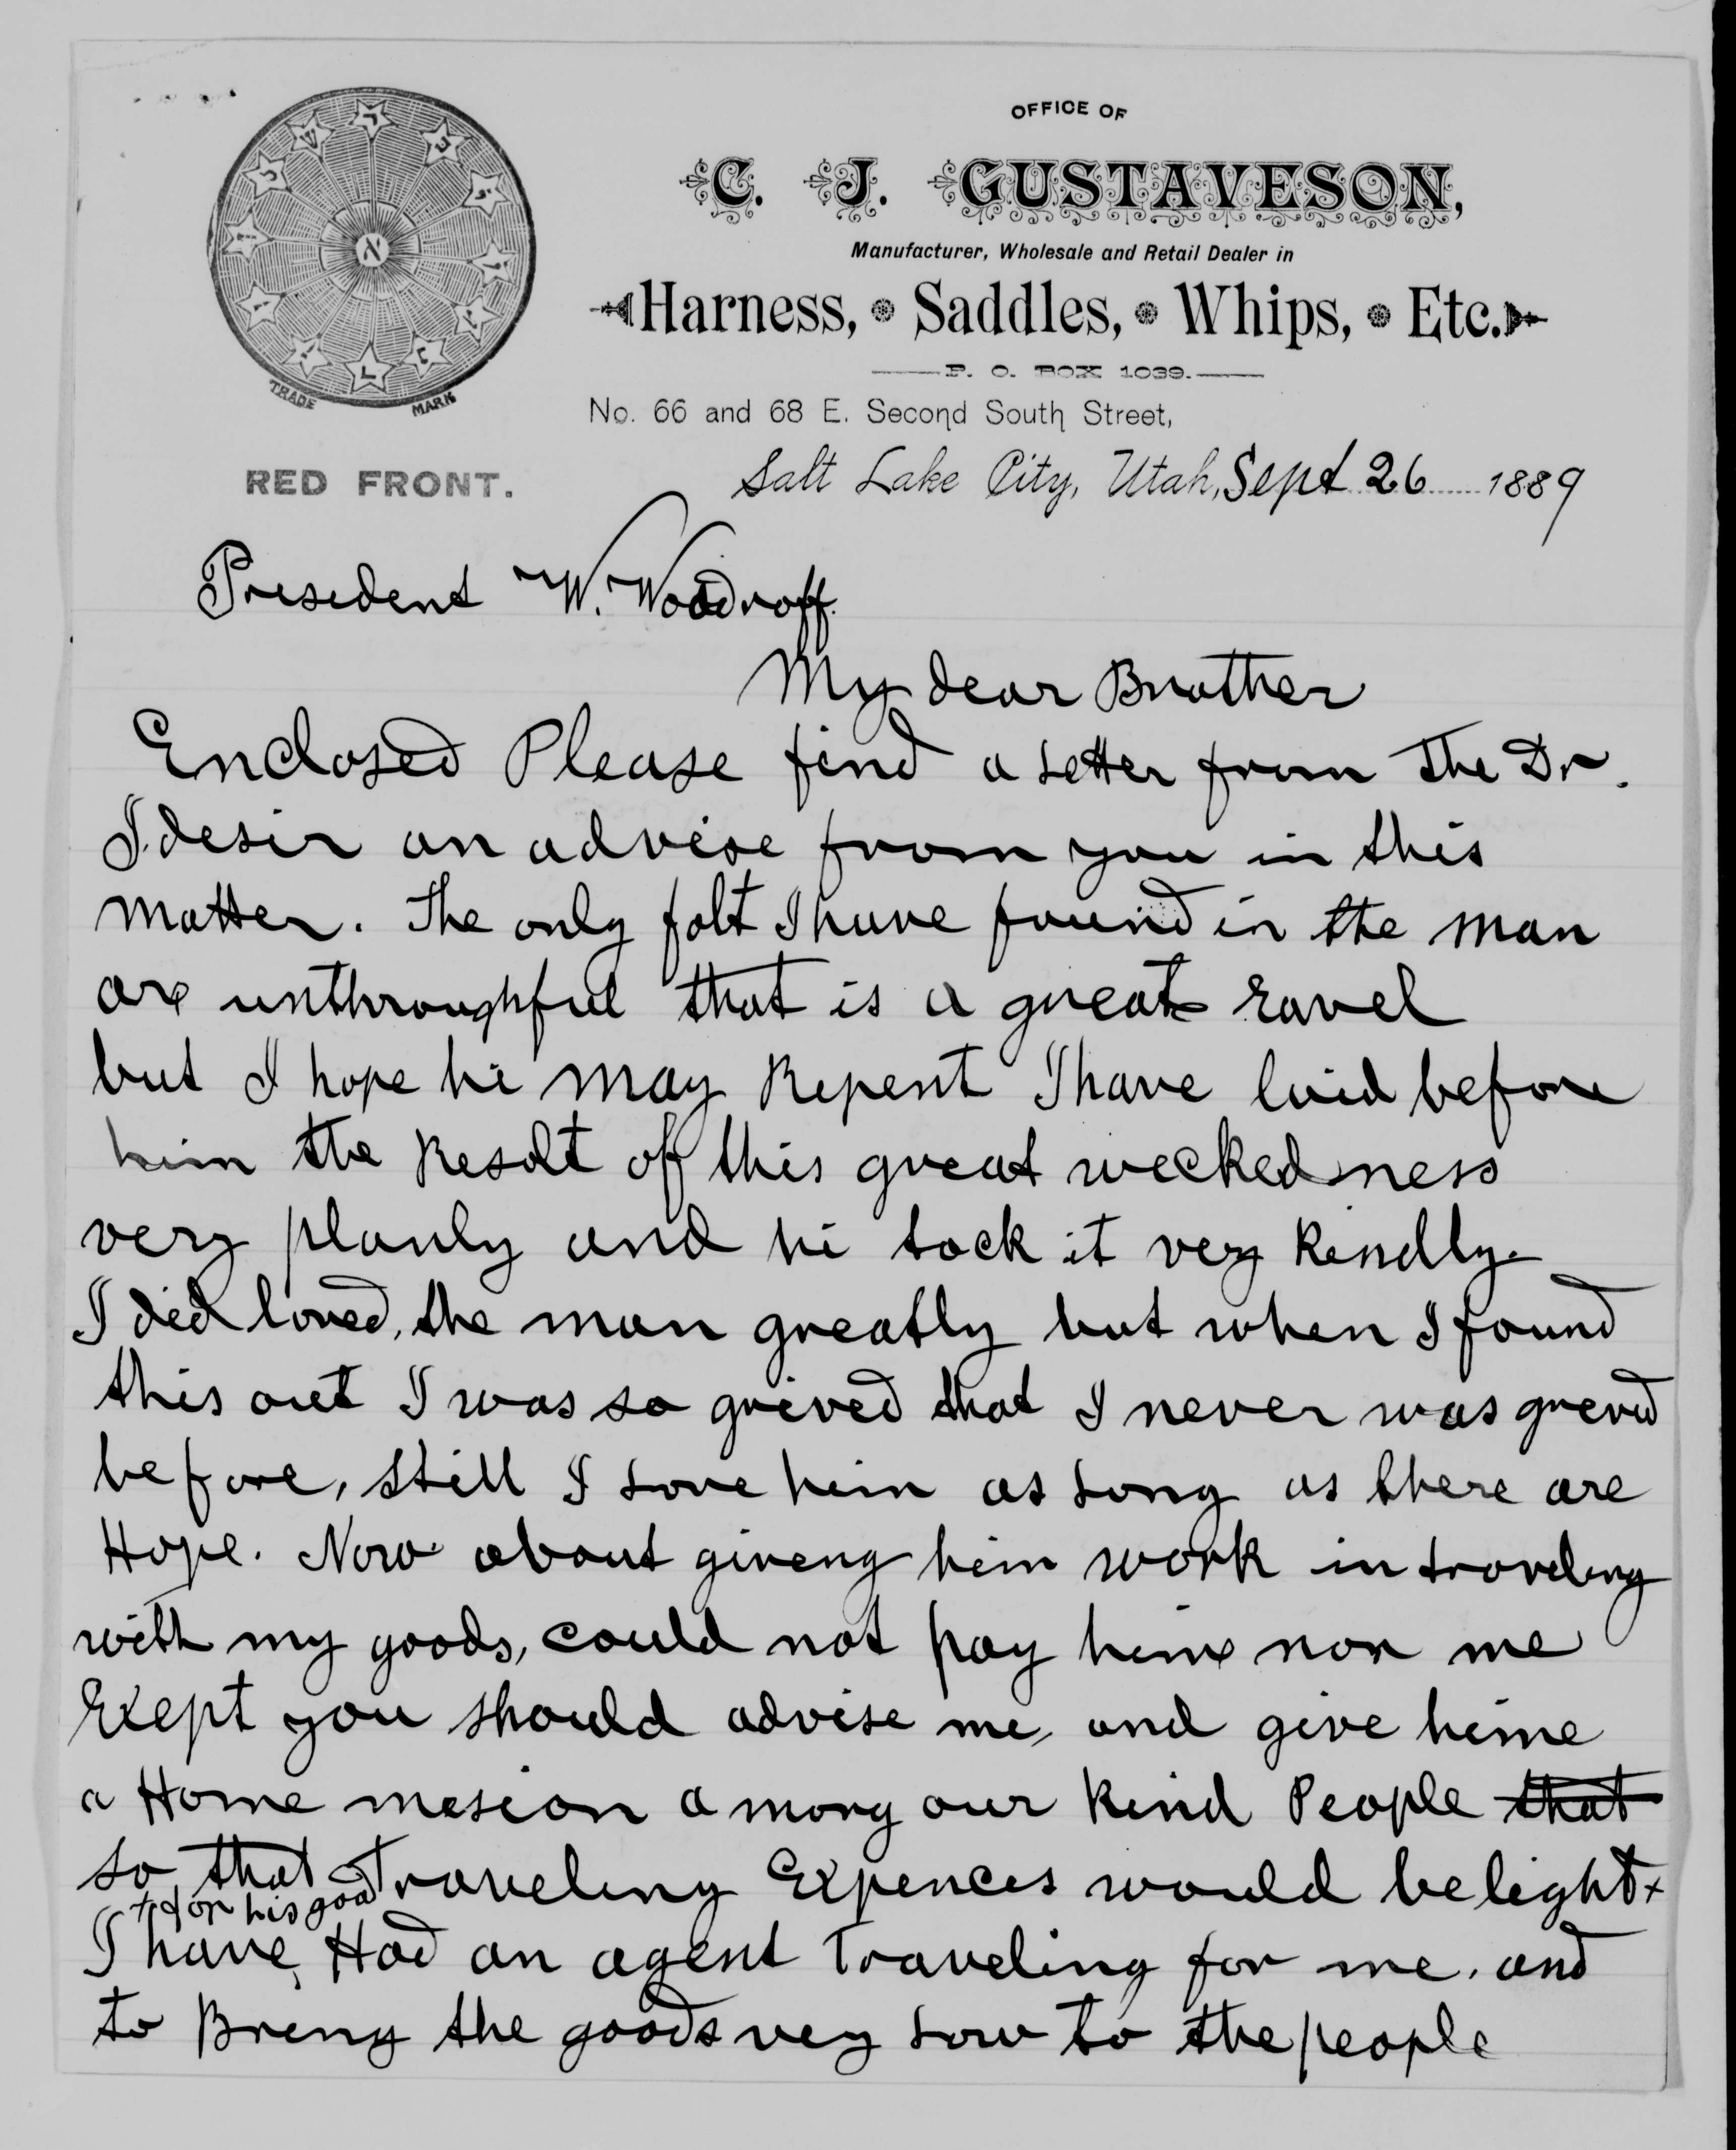 OFFICE OF
C. J. GUSTAVESON,
Manufacturer, Wholesale and Retail Dealer in
Harness, Saddles, Whips, Etc.
P. O. BOX 1039.
No. 66 and 68 E. Second South Street,
TRADE MARK
RED FRONT.
Salt Lake City, Utah, Sept 26 1889
President W. Woodroff.
My dear Brother
Enclosed Please find a Letter from the Dr.
I desir an advise from you in this
matter. The only folt I have found in the man
are unthroughful that is a great
but I hope hi may Repent I have laid before
him the Resolt of this great weckedness
very planly and hi tock it very Kindly.
I did loved, the man greatly but when I found
this out I was so grived that I never was greved
before, still I Love him as Long as there are
Hope. Now about giveng him work in traveling
with my goods, could not pay him nor me
Exept you should advise me, and give hime
a Home mesion among our Kind People that
so that Traveling Expences would be light +
+ for his good
I have Had an agent Traveling for me. and
to Breng the goods very Low to the people